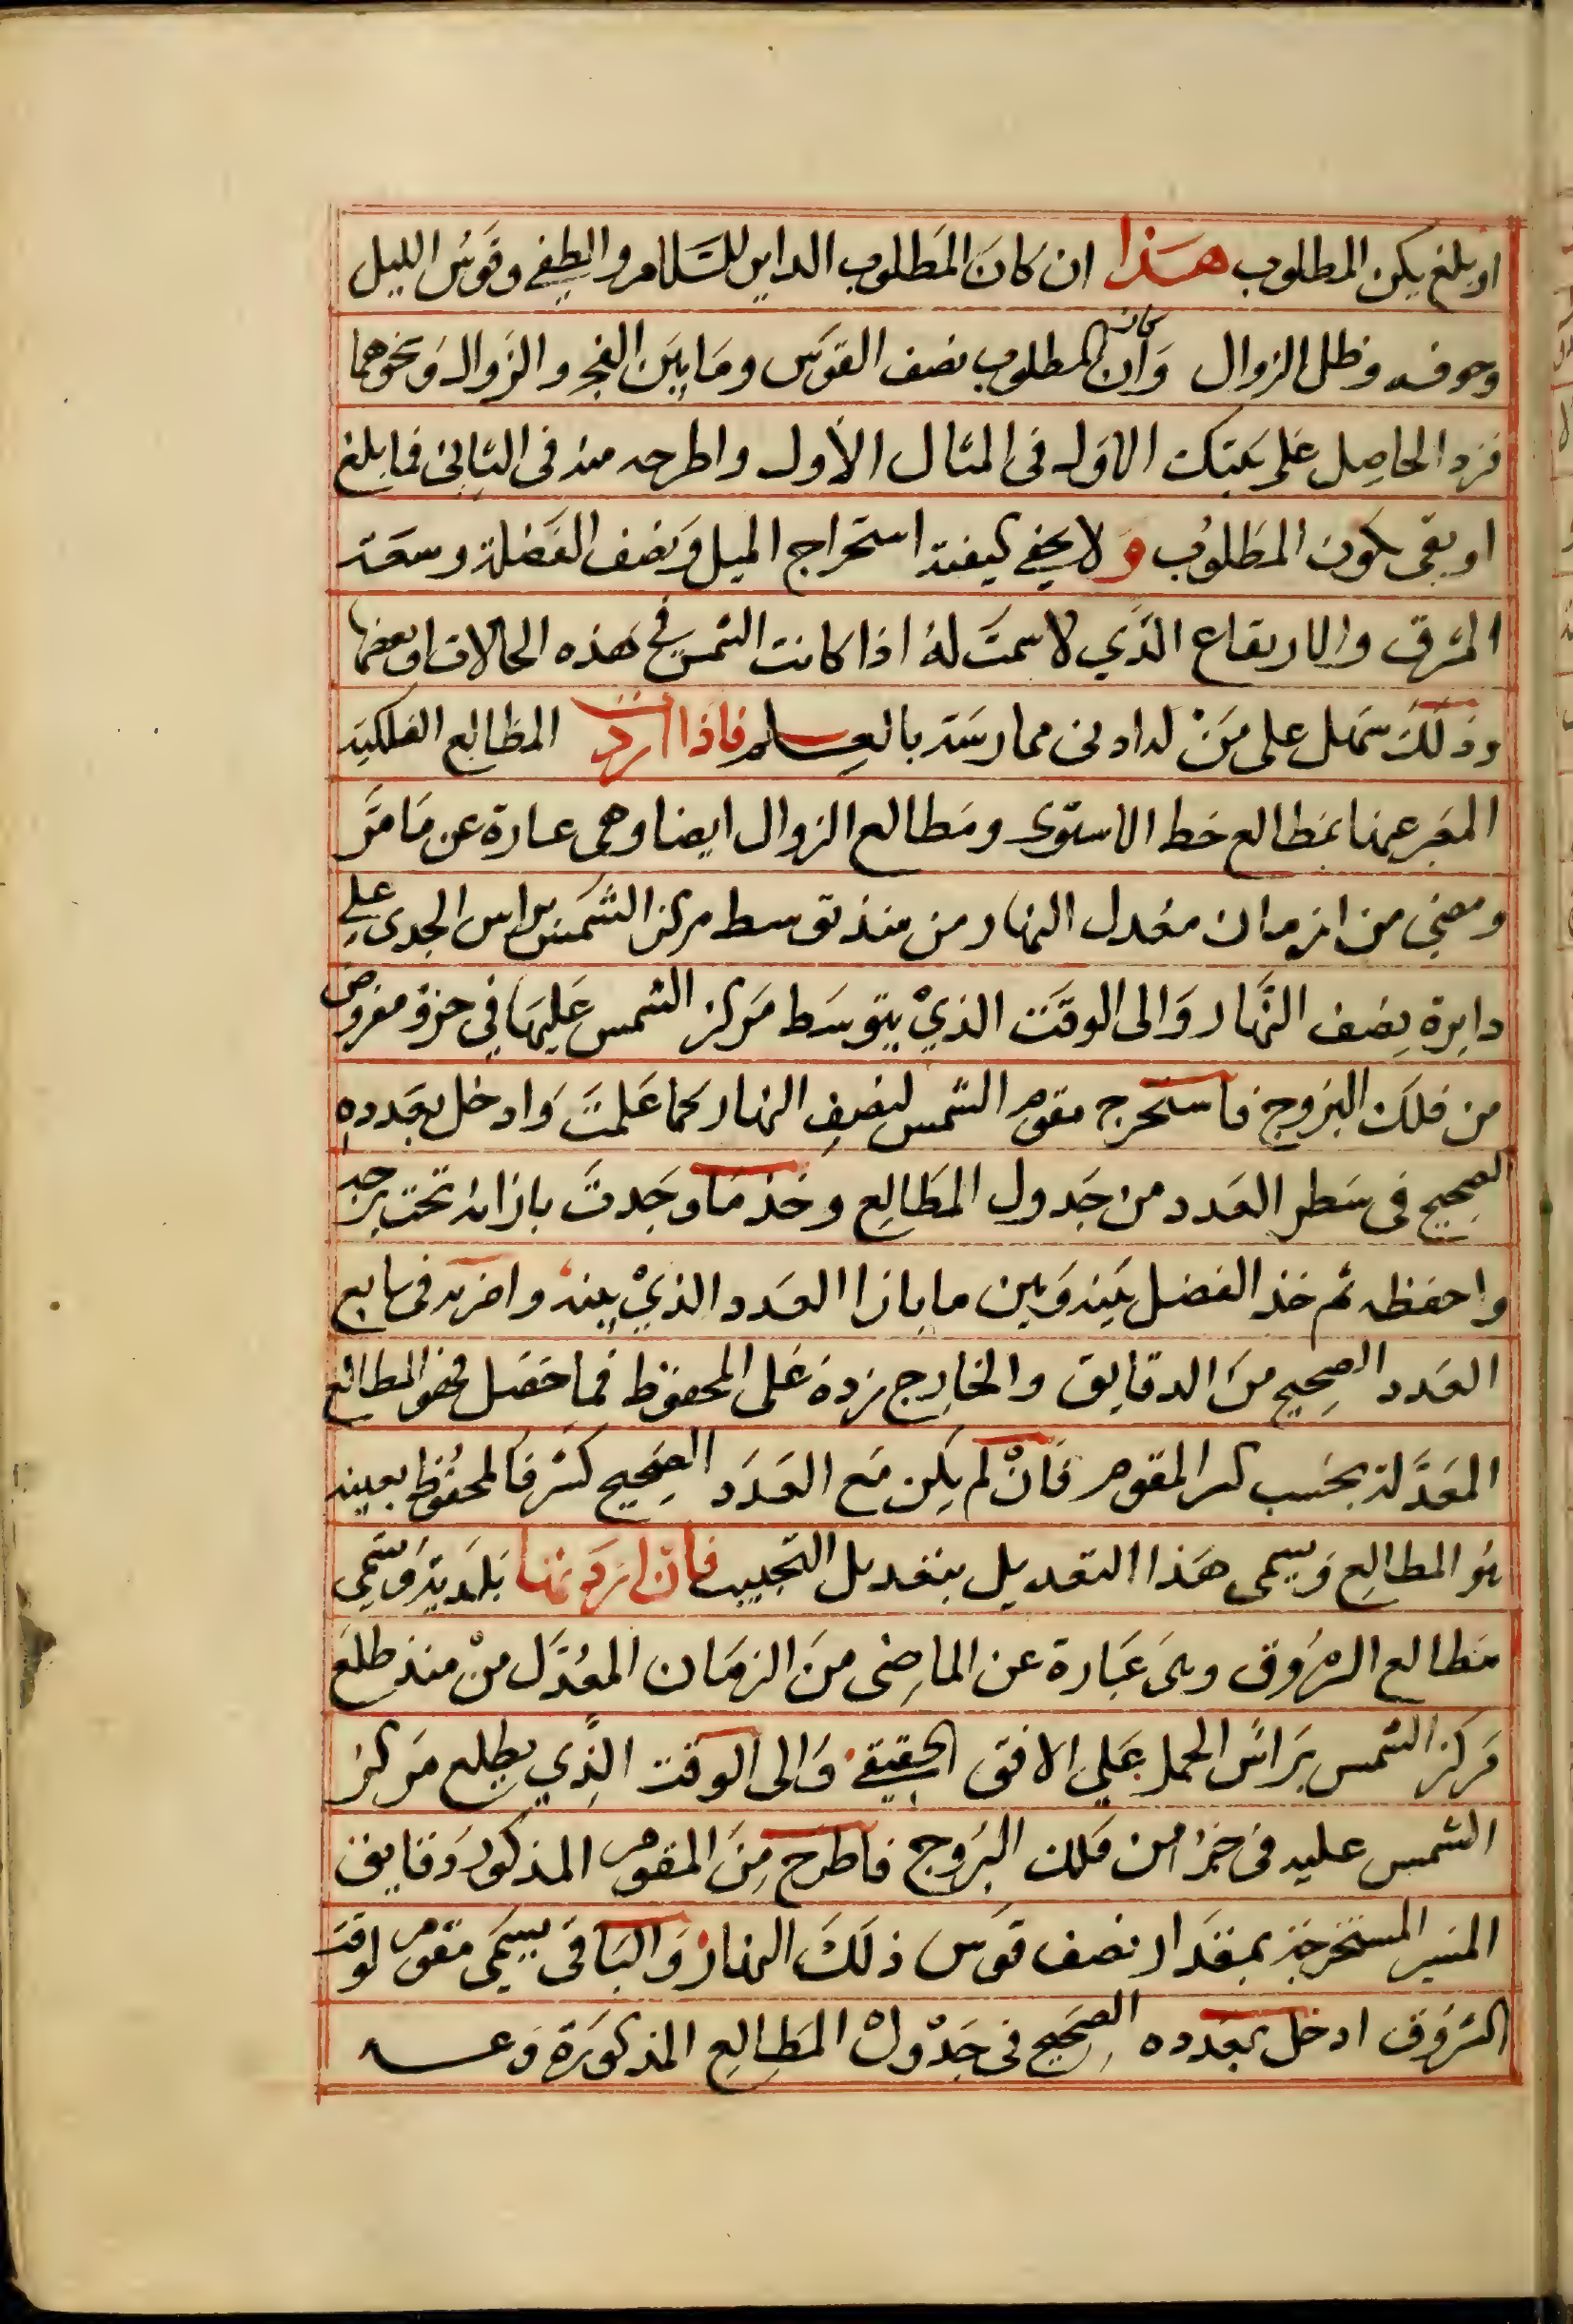 او بلغ يكن المطلوب هذا ان كان المطلوب الداير للسلام والطفي وقوس الليل
وجوفه وظل الزوال وان كان المطلوب نصف القوس وما بين الفجر والزوال ونحوهما
فزد الحاصل على الاول فى المثال الأول واطرحه منه فى الثانى فما بلغ
او بقى يكون المطلوب ولا يخفي كيفية استخراج الميل ونصف الفضلة وسعة
المشرق والارتفاع الذي لا سمت له اذا كانت الشمس في هذه الحالات او بعضها
وذلك سهل على من له ادنى ممارسة بالعلم فاذا اردت المطالع الفلكية
المعبر عنها بمطالع خط الاستوى ومطالع الزوال ايضا وهى عبارة عن ما مر
ومضى من ازمان معدل النهار من منذ توسط مركز الشمس براس الجدى علي
دايرة نصف النهار والى الوقت الذي يتوسط مركز الشمس عليها في جزؤ مفروض
من فلك البروج فاستخرج مقوم الشمس لنصف النهار كما علمت وادخل بعدده
الصحيح فى سطر العدد من جدول المطالع وخذ ما وجدت بازائه تحت برجه
واحفظه ثم خذ الفضل بينه وبين ما بازا العدد الذي يليه واضربه فى تابع
العدد الصحيح من الدقايق والخارج زده على المحفوظ فما حصل فهو المطالع
المعدلة بحسب كسر المقوم فان لم يكن مع العدد الصحيح كسر فالمحفوظ بعينه
هو المطالع ويسمى هذا التعديل بتعديل التجييب فان اردتها بلدية وتسمى
مطالع الشروق وهى عبارة عن الماضى من الزمان المعدل من منذ طلع
مركز الشمس براس الحمل علي الافق الحقيقي والى الوقت الذي يطلع مركز
الشمس عليه فى جزء من فلك البروج فاطرح من المقوم المذكور دقايق
المسير المستخرجة بمقدار نصف قوس ذلك النهار والباقى يسمى مقوم لوقت
الشروق ادخل بعدده الصحيح فى جدول المطالع المذكورة وعـــه